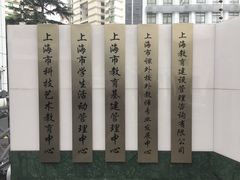 上海市科技艺术教育中心
上海市学生活动管理中心
上海市教育基建管理中心
上海市课外校外教师专业发展中心
上海教育建设管理咨询有限公司